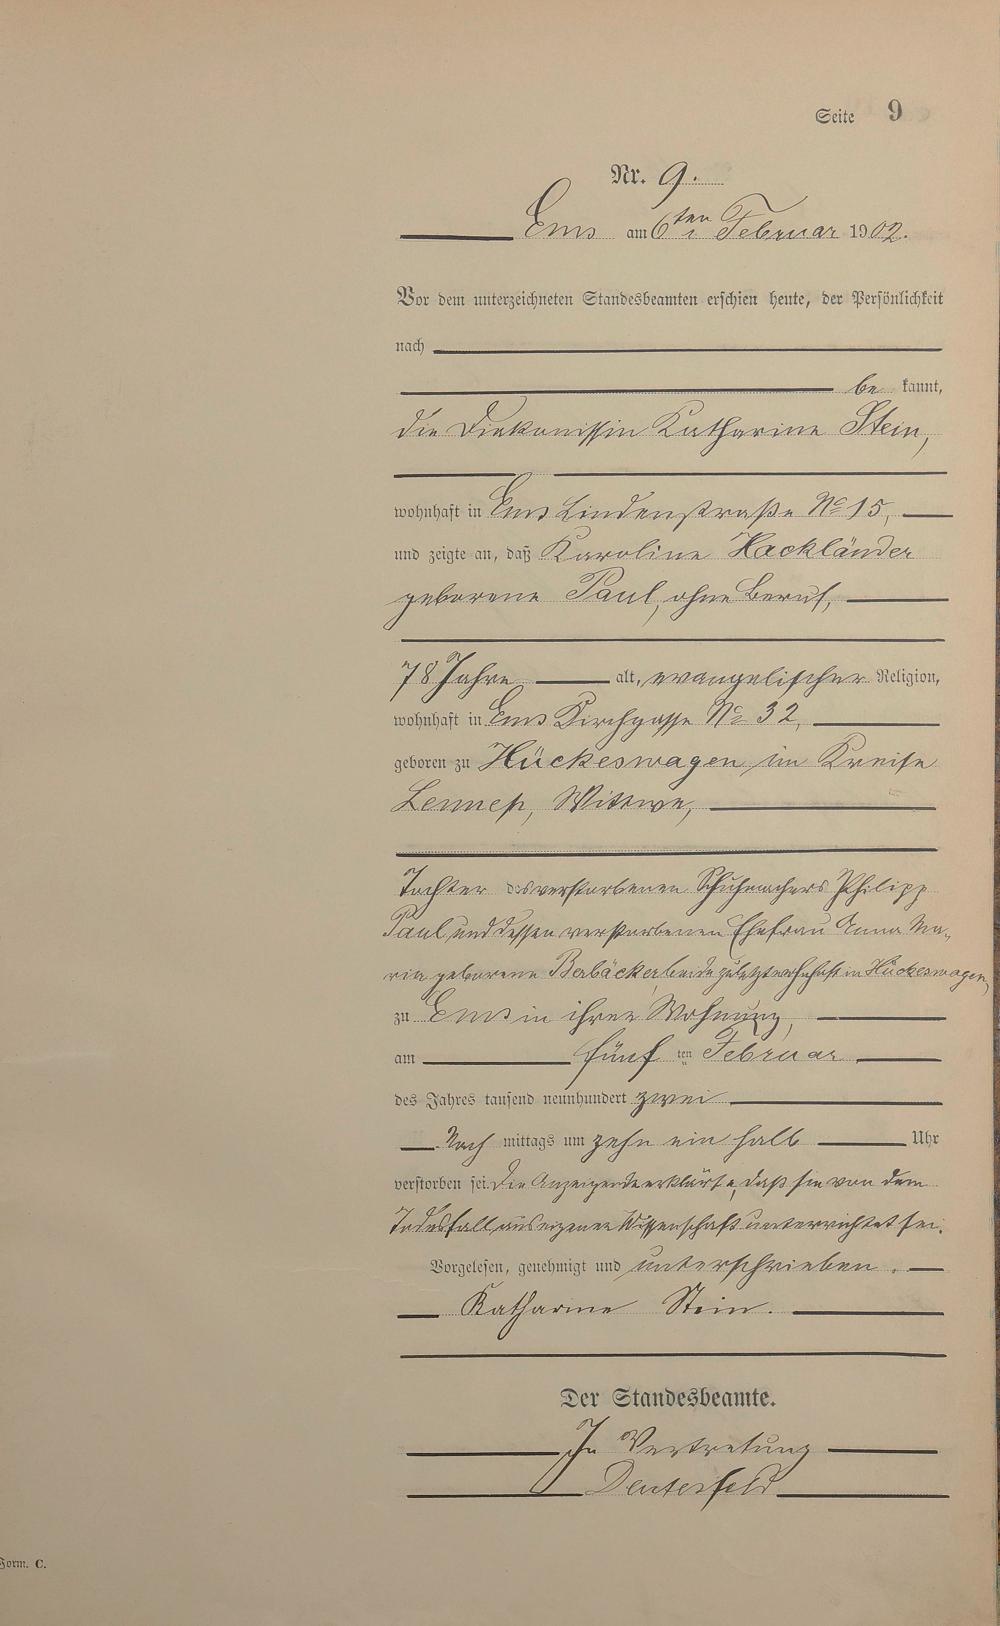 Seite 9
Nr. 9.
Ems am 6ten Februar 1902.
Vor dem unterzeichneten Standesbeamten erschien heute, der Persönlichkeit
nach
be kannt,
die Diakonissin Katharina Stein,
wohnhaft in Ems Lindenstraße No 15,
und zeigte an, daß Karoline Hackländer
geborene Paul, ohne Beruf,
78 Jahre alt, evangelischer Religion,
wohnhaft in Ems Kirchgasse No 32,
geboren zu Hückeswagen, im Kreise
Lennep, Wittwe,
Tochter des verstorbenen Schuhmachers Philipp
Paul und dessen verstorbenen Ehefrau Anna Ma-
ria geborene Berbäcker, beide zuletzt wohnhaft in Hückeswagen,
zu Ems in ihrer Wohnung,
am fünf ten Februar
des Jahres tausend neunhundert zwei
Nach mittags um zehn ein halb Uhr
verstorben sei. Die Anzeigende erklärte, daß sie von dem
Todesfall aus eigener Wissenschaft unterrichtet sei.
Vorgelesen, genehmigt und unterschrieben.
Katharine Stein.
Der Standesbeamte.
In Vertretung
Form. C.